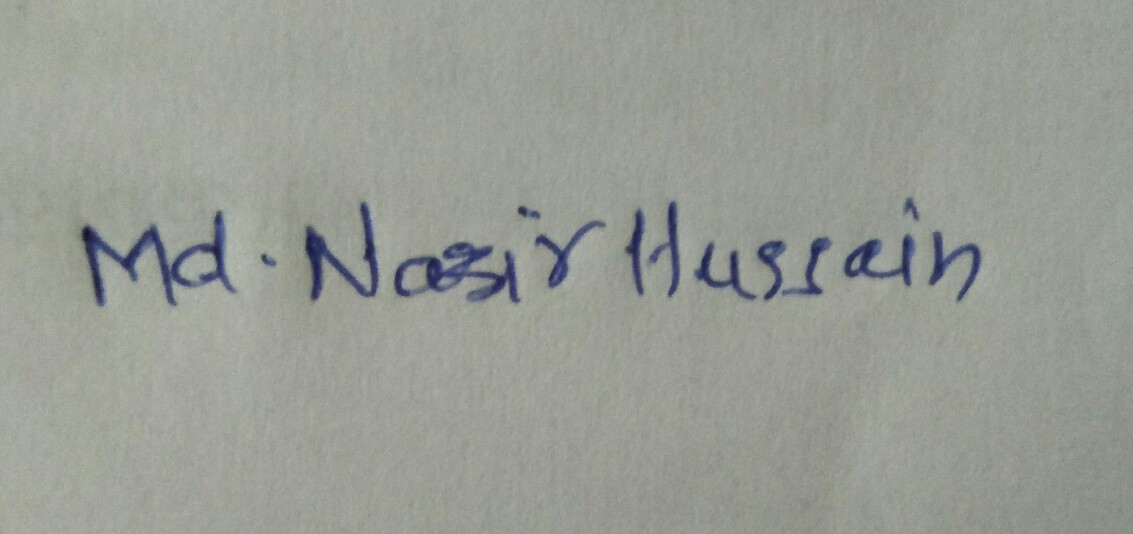 Md. Nasir Hussain